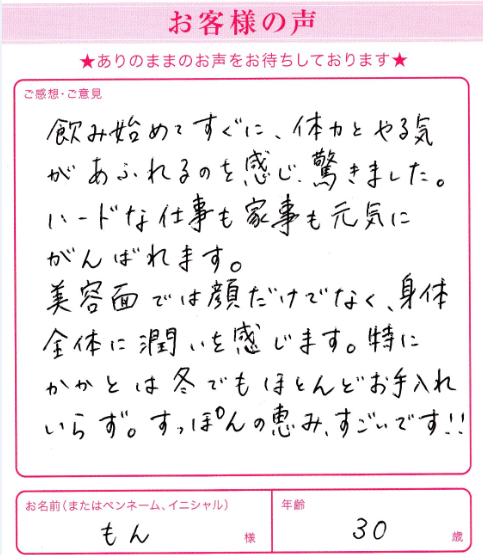 お客様の声
★ありのままのお声をお待ちしております★
ご感想・ご意見
飲み始めてすぐに、体力とやる気
があふれるのを感じ、驚きました。
ハードな仕事も家事も元気に
がんばれます。
美容面では顔だけでなく、身体
全体に潤いを感じます。特に
かかとは冬でもほとんどお手入れ
いらず。すっぽんの恵み、すごいです!!
お名前(またはペンネーム、イニシャル)
年齢
もん 様
30 歳